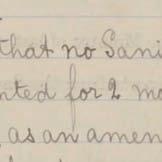 that no Sani
nted for 2 mo
as an amen